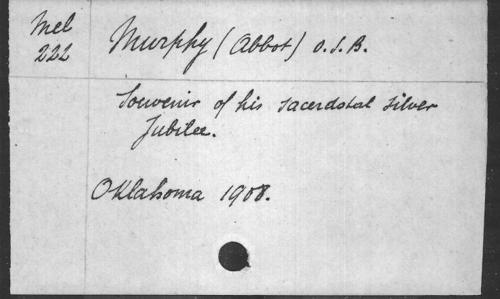 Mel
222
Murphy (Abbot) O.S.B.
Souvenir of his sacerdotal silver
Jubilee.
Oklahoma 1908.